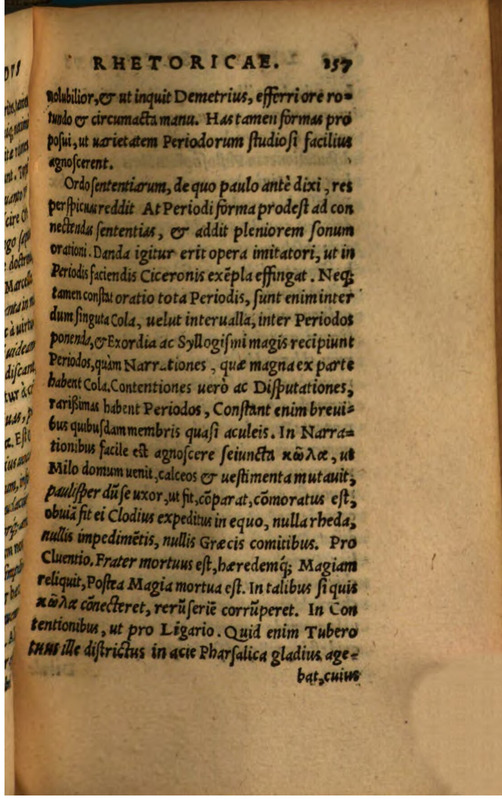 RHETORICAE. 157
uolubilior, & ut inquit Demetrius, efferri ore ro-
tundo & circumacta manu. Has tamen formas pro
posui, ut uarietatem Periodorum studiosi facilius
agnoscerent.
Ordo sententiarum, de quo paulo antè dixi, res
perspicuas reddit At Periodi forma prodest ad con
nectendas sententias, & addit pleniorem sonum
orationi. Danda igitur erit opera imitatori, ut in
Periodis faciendis Ciceronis exēpla effingat. Neq;
tamen constat oratio tota Periodis, sunt enim inter
dum singula Cola, uelut interualla, inter Periodos
ponenda, & Exordia ac Syllogismi magis recipiunt
Periodos, quàm Narrationes, quæ magna ex parte
habent Cola. Contentiones uerò ac Disputationes,
rarißimas habent Periodos, Constant enim breui-
bus quibusdam membris quasi aculeis. In Narra-
tionibus facile est agnoscere seiuncta κῶλα, ut
Milo domum uenit, calceos & uestimenta mutauit,
paulisper dū se uxor, ut fit, cōparat, cōmoratus est,
obuiā fit ei Clodius expeditus in equo, nulla rheda,
nullis impedimētis, nullis Græcis comitibus. Pro
Cluentio. Frater mortuus est, hæredemq; Magiam
reliquit, Postea Magia mortua est. In talibus si quis
κῶλα cōnecteret, rerū seriē corrūperet. In Con
tentionibus, ut pro Ligario. Quid enim Tubero
tuus ille districtus in acie Pharsalica gladius age-
bat, cuius